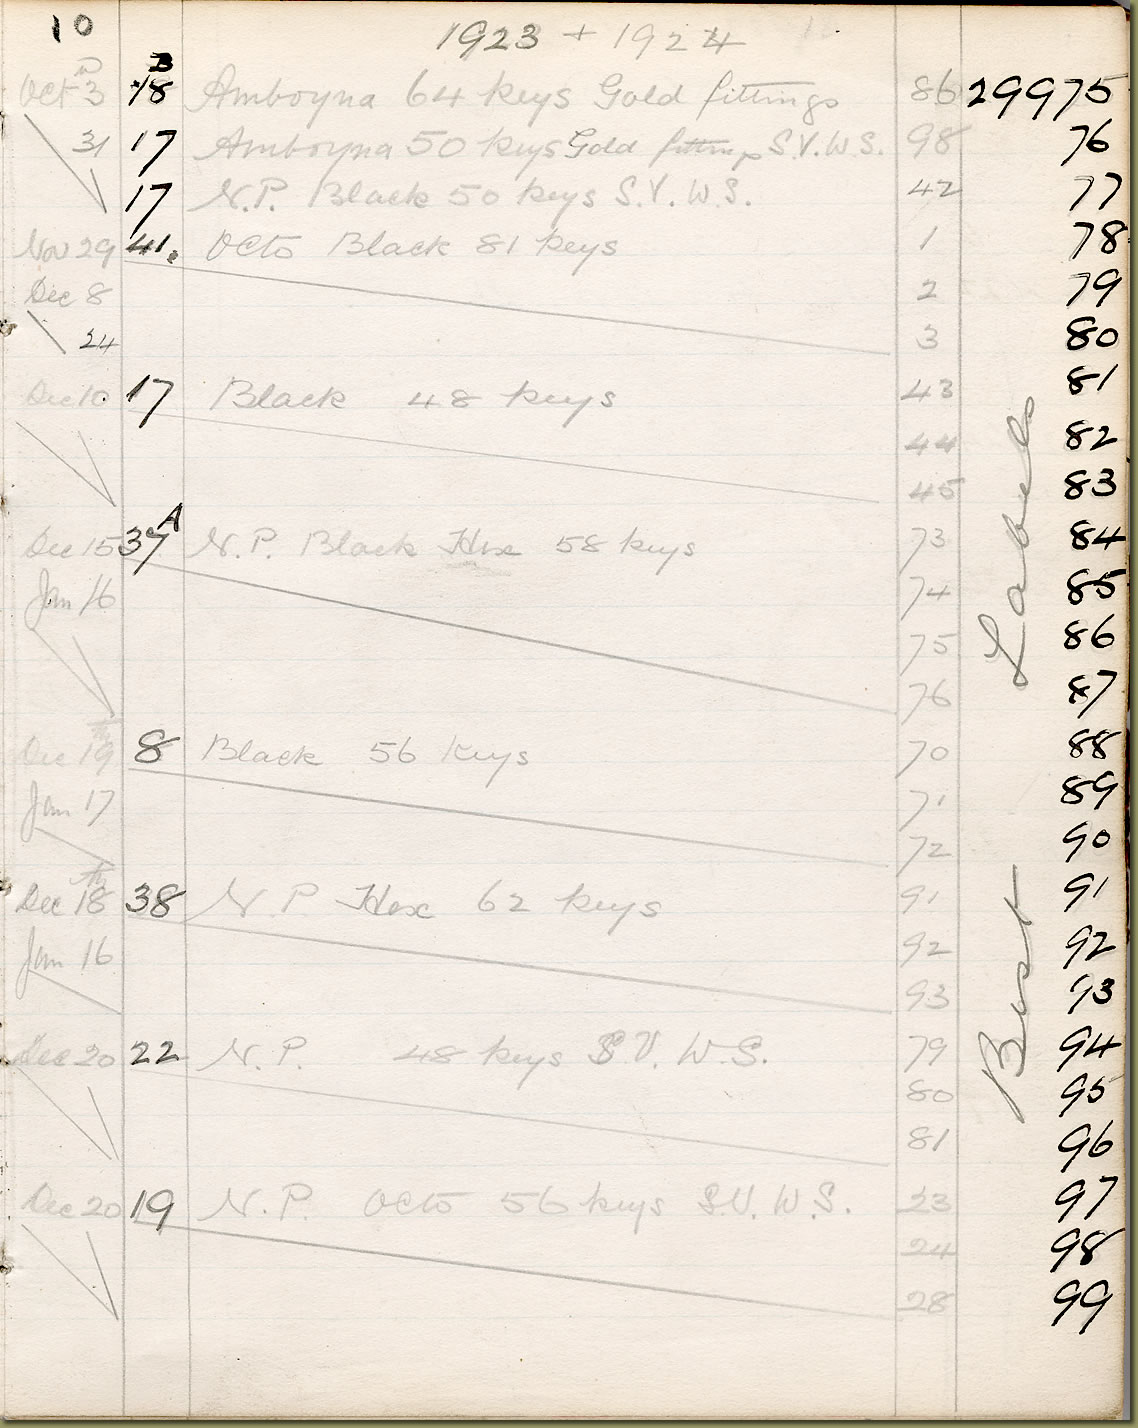 10 1923 + 1924
B
Oct 3 18 Amboyna 64 keys Gold fittings 86 29975
31 17 Amboyna 50 keys Gold fittings S.V.W.S. 98 76
17 N.P. Black 50 keys S.V.W.S. 42 77
Nov 29 41. Octo Black 81 keys 1 78
Dec 8 2 79
24 3 80
Dec 10 17 Black 48 keys 43 81
44 82
45 83
Dec 15 37A N.P. Black Hex 58 keys 73 84
Jan 16 74 85
75 86
76 87
Dec 19th 8 Black 56 keys 70 88
Jan 17 71 89
72 90
Dec 18th 38 N.P. Hex 62 keys 91 91
Jan 16 92 92
93 93
Dec 20 22 N.P. 48 keys S.V. W.S. 79 94
80 95
81 96
Dec 20 19 N.P. Octo 56 keys S.V. W.S. 23 97
24 98
28 99
Best Labels